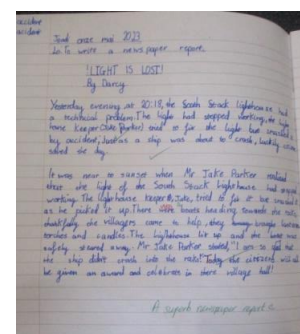 accident
accident
Jeudi onze mai 2023
Lo: To write a newspaper report.
!LIGHT IS LOST!
By Darcy
Yesterday evening at 20:18, the South Stack lighthouse had
a technical problem. The light had stopped working, the light
house keeper (Jake Parker) tried to fix the light but
by accident, Just as a ship was about to crash, luckily
saved the day.
It was near to sunset when Mr Jake Parker realised
that the light of the South Stack Lighthouse had stopped
working. The lighthouse keeper, Jake, tried to fix it but
as he picked it up. There were boats heading towards the rocks
thankfully the villagers came to help, they brought
torches and candles. The lighthouse lit up and the boat was
safely steered away. Mr Jake Parker stated, "I am so glad that
the ship didn't crash into the rocks! Today the citizens will
be given an award and celebrate in there village hall!
A superb newspaper report